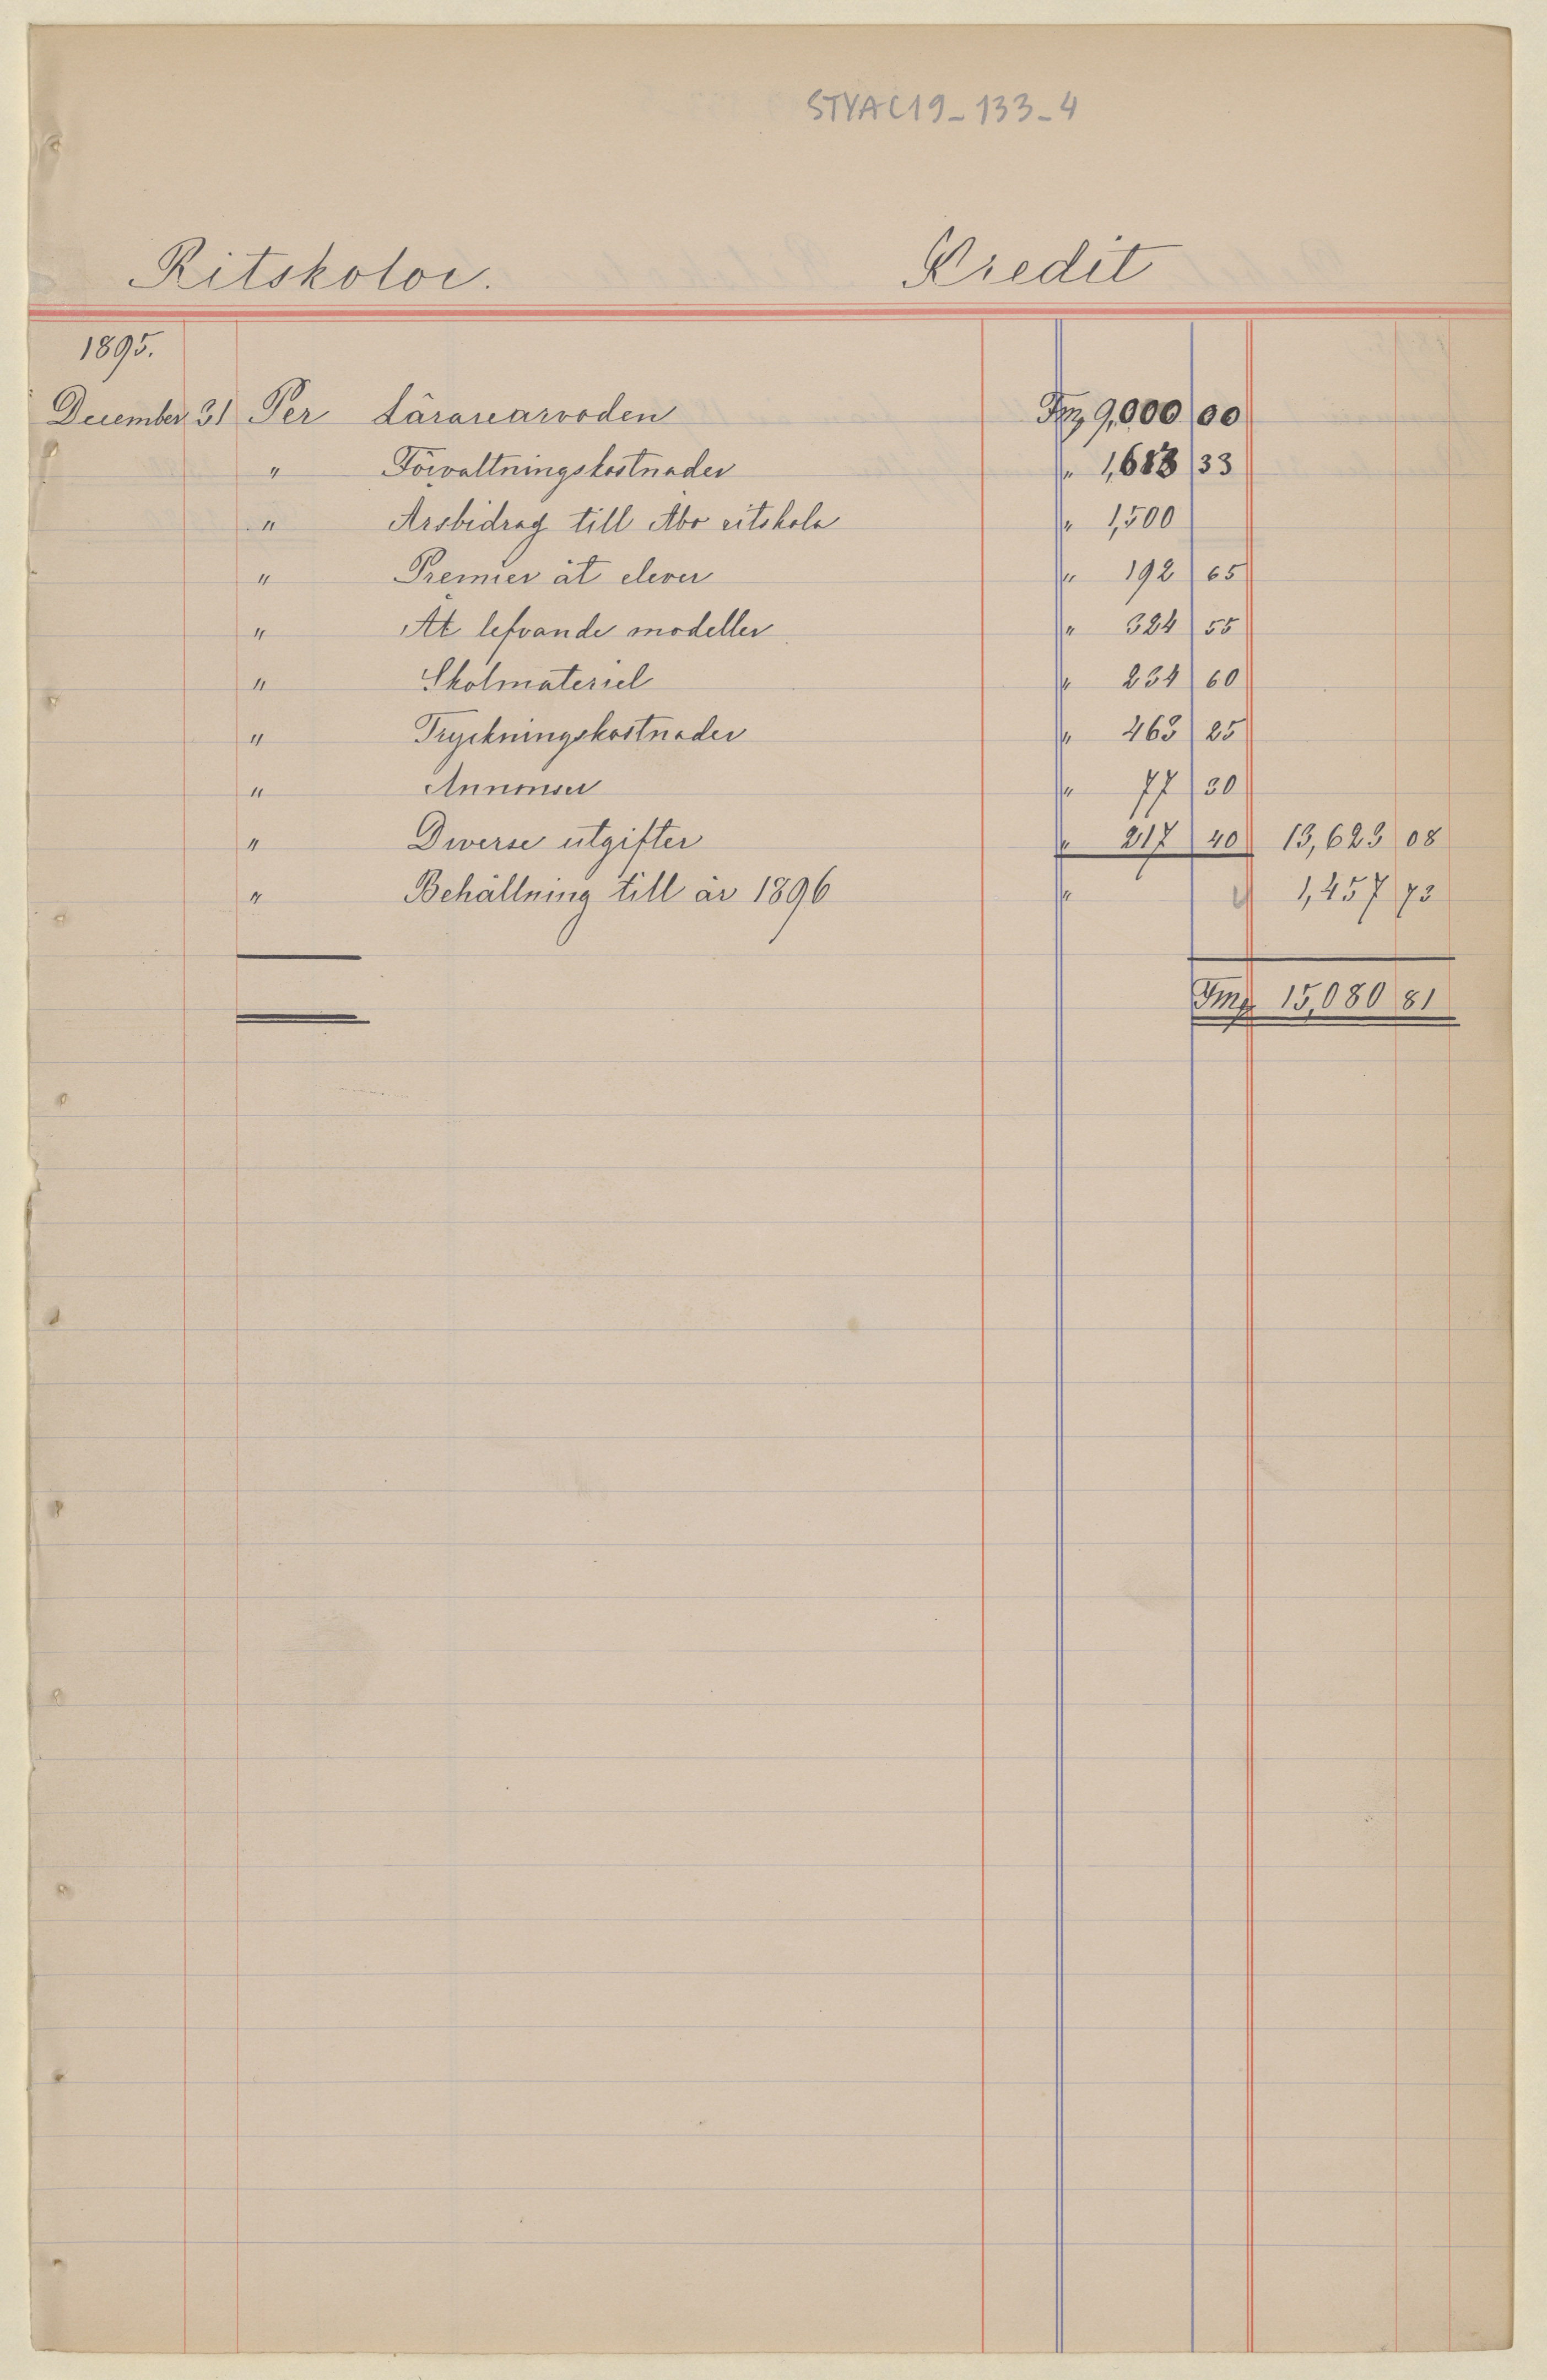 STYAC19_133_4
Ritskolor. Credit
1895.
December 31 Per Lärarearvoden Fmg 9,000 00
" Förvaltningskostnader " 1,613 33
" Arsbidrag till Abo ritskola " 1,500
" Premier åt elever " 192 65
" At lefvande modeller " 324 55
" Skolmateriel " 234 60
" Tryckningskostnader " 463 25
" Annonser " 77 30
" Diverse utgifter " 217 40 13,623 08
" Behållning till år 1896 " 1,457 73
Fmg 15,080 81